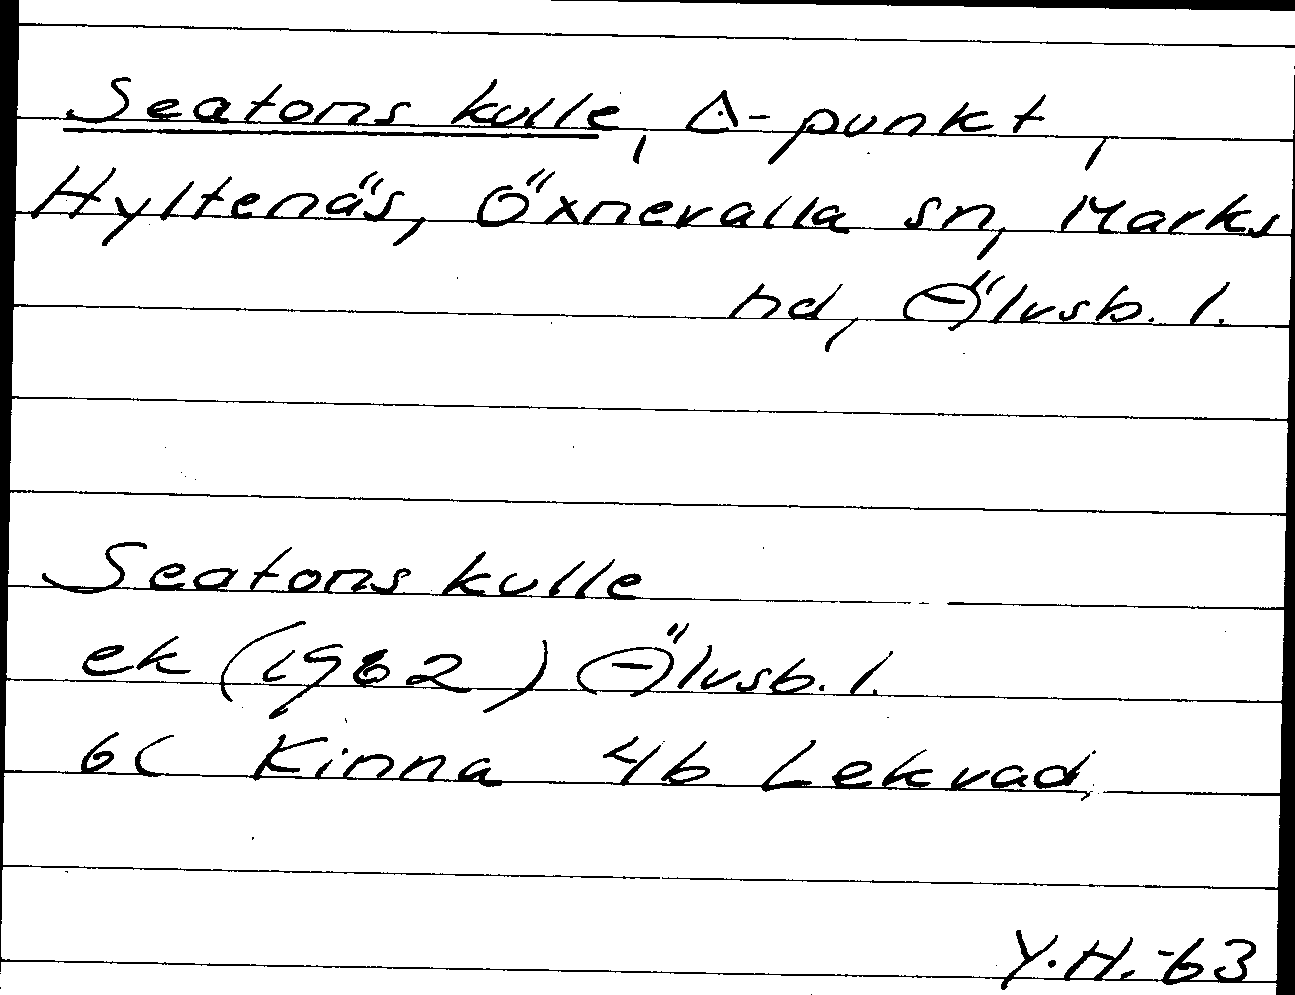 Seatons kulle, △-punkt,
Hyltenäs, Öxnevalla sn, Marks
hd, Älvsb. l.
Seatons kulle
ek (1962) Älvsb. l.
6C Kinna 4b Lekvad
Y.H.-63